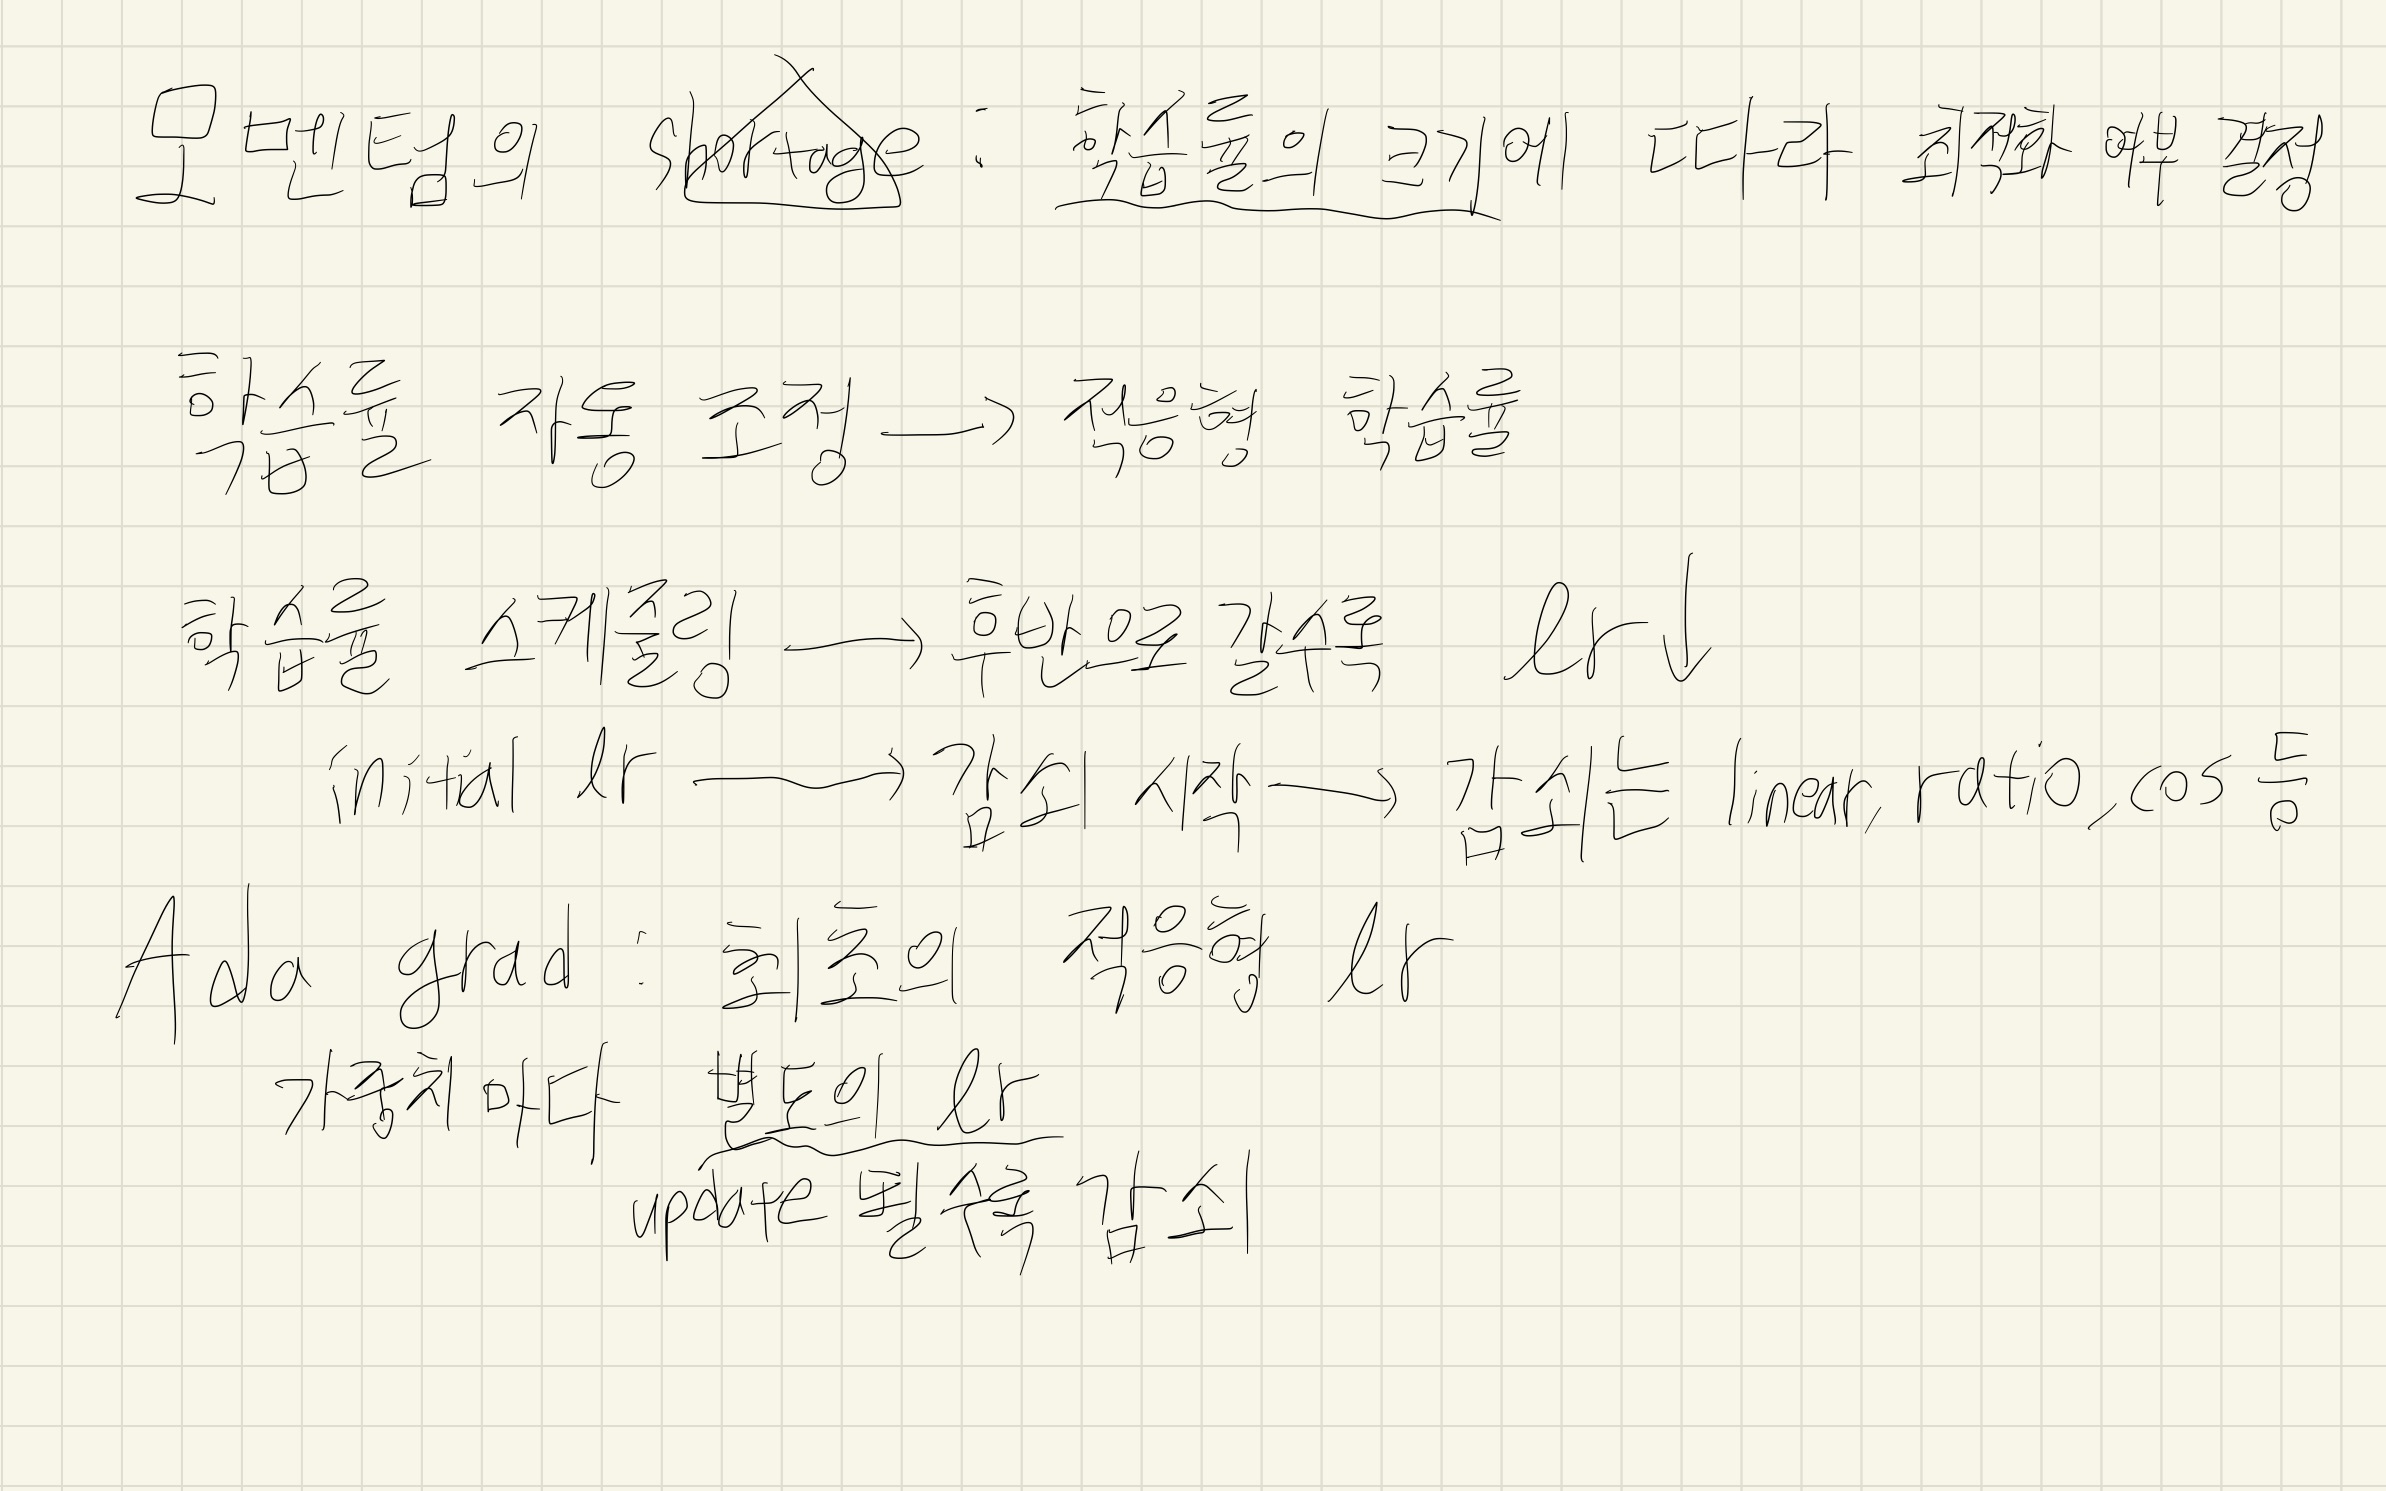 모멘텀의 shortage : 학습률의 크기에 따라 최적화 여부 결정
학습률 자동 조정 → 적응형 학습률
학습률 스케줄링 → 후반으로 갈수록 lr↓
initial lr → 감쇠 시작 → 감쇠는 linear, ratio, cos 등
Ada grad : 최초의 적응형 lr
가중치마다 별도의 lr
update 될수록 감쇠